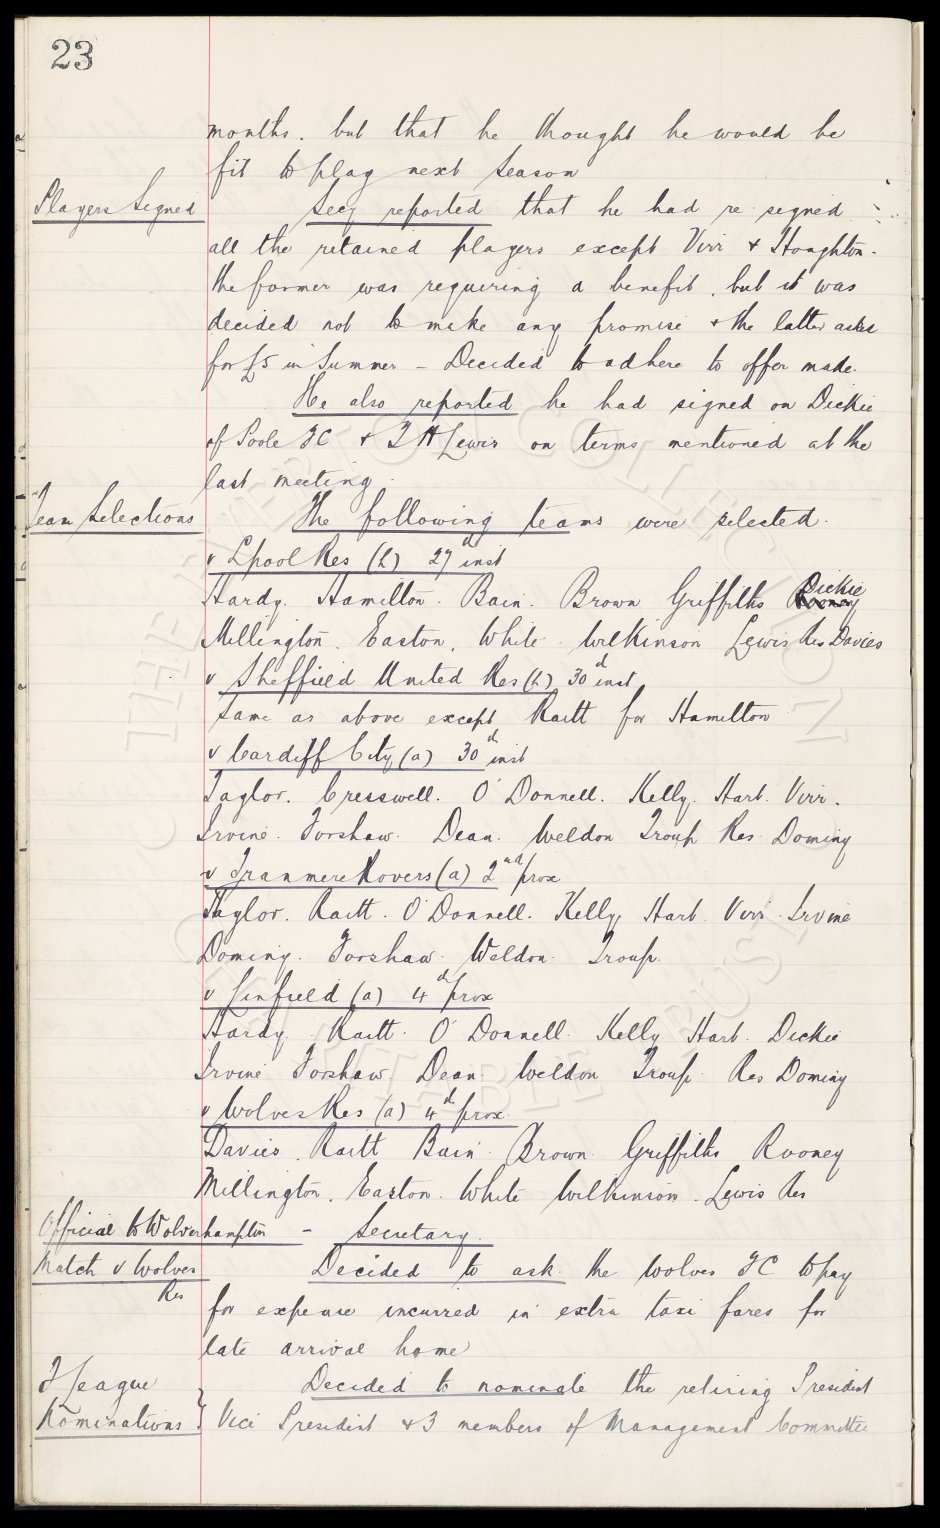 23
months. but that he thought he would be
fit to play next season
Players Signed
Secy reported that he had re signed
all the retained players except Virr + Houghton.
the former was requiring a benefit, but it was
decided not to make any promise + the latter asked
for £5 in Summer - Decided to adhere to offer made.
He also reported he had signed on Dickie
of Poole FC + T H Lewis on terms mentioned at the
last meeting.
Team Selections
The following teams were selected.
v Lpool Res (h) 27th inst
Hardy. Hamilton. Bain. Brown Griffiths Rooney Dickie
Millington. Easton. White. Wilkinson Lewis Res Davies
v Sheffield United Res (h) 30th inst
Same as above except Raitt for Hamilton
v Cardiff City (a) 30th inst
Taylor. Cresswell. O'Donnell. Kelly. Hart. Virr.
Irvine. Forshaw. Dean. Weldon Troup Res. Doming
v Tranmere Rovers (a) 2nd prox
Taylor. Raitt. O'Donnell. Kelly, Hart. Virr. Irvine
Doming. Forshaw. Weldon. Troup.
v Linfield (a) 4th prox
Hardy. Raitt. O'Donnell. Kelly Hart. Dickie
Irvine Forshaw. Dean Weldon Troup. Res Doming
v Wolves Res (a) 4th prox.
Davies. Raitt Bain. Brown. Griffiths Rooney
Millington. Easton. White Wilkinson. Lewis Res
Official to Wolverhampton - Secretary.
Match v Wolves
Res
Decided to ask the Wolves FC to pay
for expense incurred in extra taxi fares for
late arrival home
F League
Nominations
Decided to nominate the retiring President
Vice President + 3 members of Management Committee
THE EVERTON COLLECTION
CHARITABLE TRUST